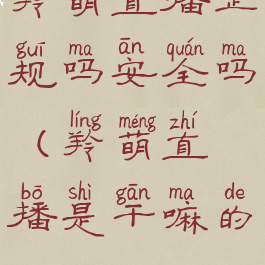 羚萌直播正
guī ma ān quán ma
规吗安全吗
líng méng zhí
(羚萌直
bō shì gān ma de
播是干嘛的